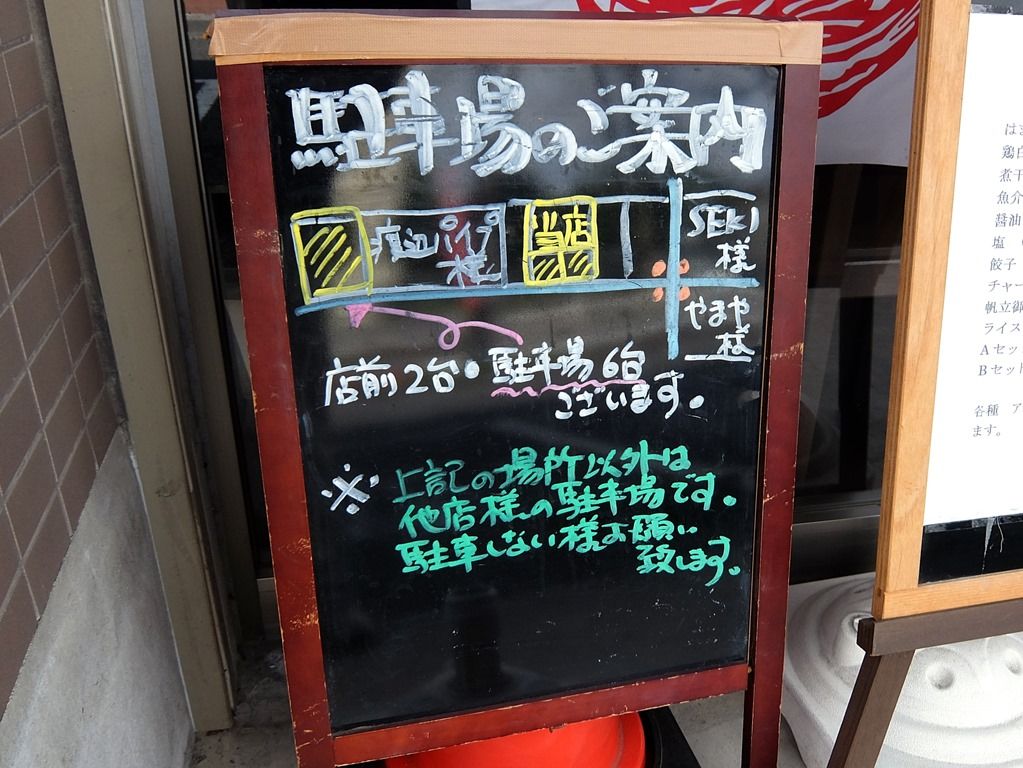 駐車場のご案内
渡辺パイプ様
当店
SEKI様
やまや様
店前2台・駐車場6台
ございます。
※ 上記の場所以外は
他店様の駐車場です。
駐車しない様お願い
致します。
煮干
魚介
醤油
塩
餃子
チャー
帆立御
ライス
Aセッ
Bセット
各種 ア
ます。